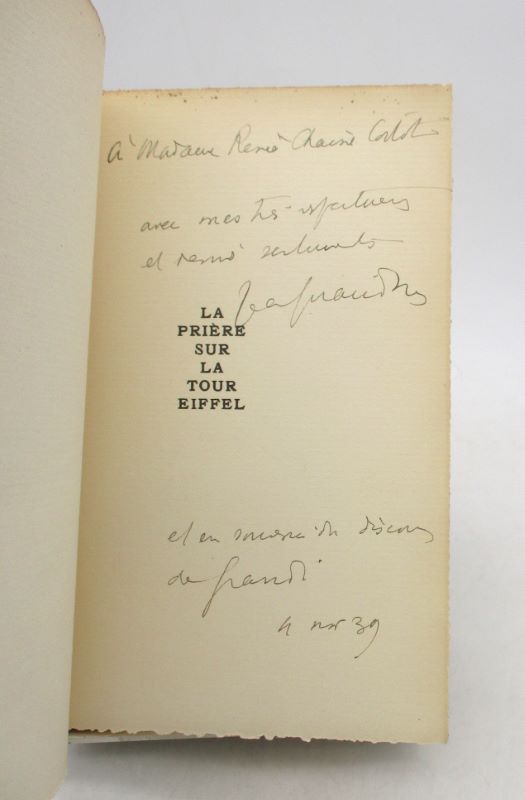 à Madame René Chaine Cortot
avec mes très respectueux
et sentiments
Jean Giraudoux
LA
PRIÈRE
SUR
LA
TOUR
EIFFEL
et en souvenir du discours
de
4 nov 39